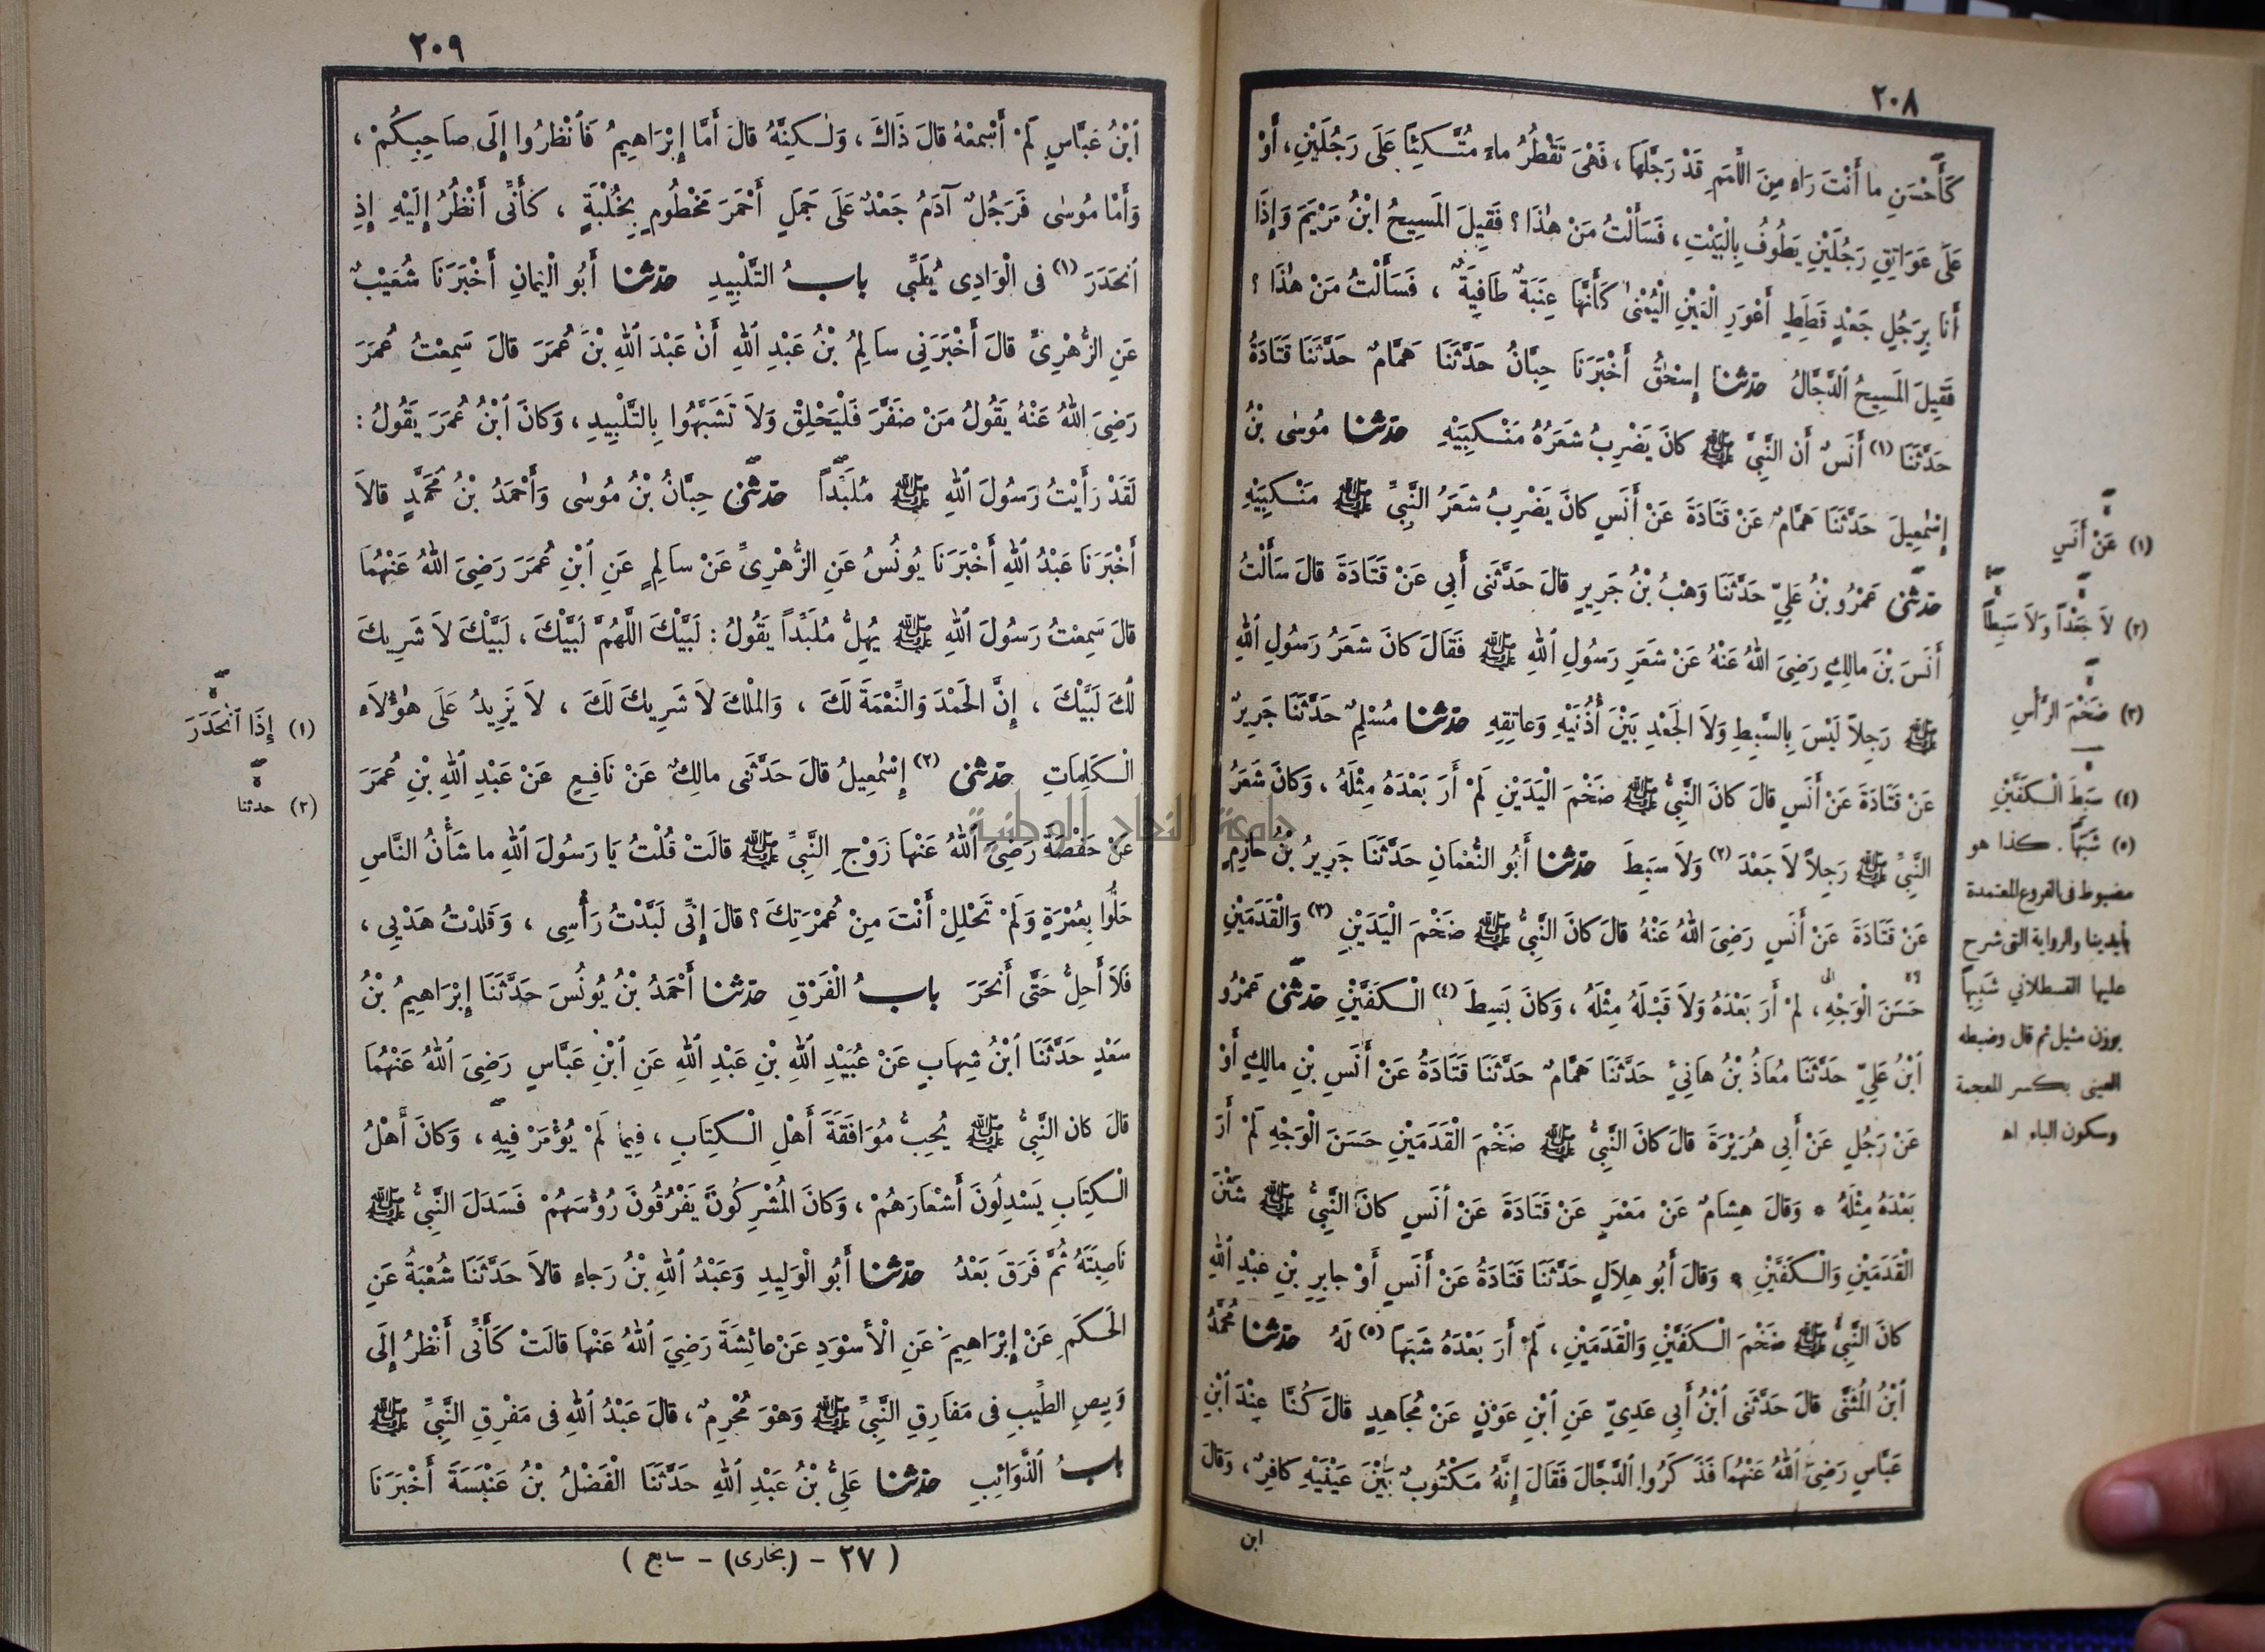 ٢٠٨
كَأَحْسَنِ ما أَنْتَ رَاءٍ مِنَ الْأُمَمِ قَدْ رَجَّلَهَا، فَهْيَ تَقْطُرُ ماءً مُتَّكِئًا عَلَى رَجُلَيْنِ، أَوْ
عَلَى عَوَاتِقِ رَجُلَيْنِ يَطُوفُ بِالْبَيْتِ، فَسَأَلْتُ مَنْ هٰذَا؟ فَقِيلَ الْمَسِيحُ ابْنُ مَرْيَمَ وَإِذَا
أَنَا بِرَجُلٍ جَعْدٍ قَطَطٍ أَعْوَرِ الْعَيْنِ الْيُمْنٰى كَأَنَّهَا عِنَبَةٌ طَافِيَةٌ، فَسَأَلْتُ مَنْ هٰذَا؟
فَقِيلَ الْمَسِيحُ الدَّجَّالُ حَدَّثَنَا إِسْحٰقُ أَخْبَرَنَا حِبَّانُ حَدَّثَنَا هَمَّامٌ حَدَّثَنَا قَتَادَةُ
حَدَّثَنَا (١) أَنَسٌ أَن النَّبِيَّ ﷺ كانَ يَضْرِبُ شَعَرُهُ مَنْكِبَيْهِ حَدَّثَنَا مُوسٰى بْنُ
إِسْمٰعِيلَ حَدَّثَنَا هَمَّامٌ عَنْ قَتَادَةَ عَنْ أَنَسٍ كانَ يَضْرِبُ شَعَرُ النَّبِيِّ ﷺ مَنْكِبَيْهِ
حَدَّثَنِي عَمْرُو بْنُ عَلِيٍّ حَدَّثَنَا وَهْبُ بْنُ جَرِيرٍ قالَ حَدَّثَنِى أَبِي عَنْ قَتَادَةَ قالَ سَأَلْتُ
أَنَسَ بْنَ مالِكٍ رَضِيَ اللهُ عَنْهُ عَنْ شَعَرِ رَسُولِ اللهِ ﷺ فَقَالَ كانَ شَعَرُ رَسُولِ اللهِ
ﷺ رَجِلاً لَيْسَ بِالسَّبِطِ وَلاَ الْجَعْدِ بَيْنَ أُذُنَيْهِ وَعاتِقِهِ حَدَّثَنَا مُسْلِمٌ حَدَّثَنَا جَرِيرٌ
عَنْ قَتَادَةَ عَنْ أَنَسٍ قالَ كانَ النَّبِيُّ ﷺ ضَخْمَ الْيَدَيْنِ لَمْ أَرَ بَعْدَهُ مِثْلَهُ، وَكانَ شَعَرُ
النَّبِيِّ ﷺ رَجِلاً لاَ جَعْدَ (٢) وَلاَ سَبِطَ حَدَّثَنَا أَبُو النُّعْمَانِ حَدَّثَنَا جَرِيرُ بْنُ حازِمٍ
عَنْ قَتَادَةَ عَنْ أَنَسٍ رَضِيَ اللهُ عَنْهُ قالَ كانَ النَّبِيُّ ﷺ ضَخْمَ الْيَدَيْنِ (٣) وَالْقَدَمَيْنِ
حَسَنَ الْوَجْهِ، لَمْ أَرَ بَعْدَهُ وَلاَ قَبْلَهُ مِثْلَهُ، وَكانَ بَسِطَ (٤) الْكَفَّيْنِ حَدَّثَنِي عَمْرُو
ابْنُ عَلِيٍّ حَدَّثَنَا مُعَاذُ بْنُ هَانِيْ حَدَّثَنَا هَمَّامٌ حَدَّثَنَا قَتَادَةُ عَنْ أَنَسِ بْنِ مالِكٍ أَوْ
عَنْ رَجُلٍ عَنْ أَبِى هُرَيْرَةَ قالَ كانَ النَّبِيُّ ﷺ ضَخْمَ الْقَدَمَيْنِ حَسَنَ الْوَجْهِ لَمْ أَرَ
بَعْدَهُ مِثْلَهُ * وَقالَ هِشَامٌ عَنْ مَعْمَرٍ عَنْ قَتَادَةَ عَنْ أَنَسٍ كانَ النَّبِيُّ ﷺ شَثْنَ
الْقَدَمَيْنِ وَالْكَفَّيْنِ * وَقالَ أَبُو هِلاَلٍ حَدَّثَنَا قَتَادَةُ عَنْ أَنَسٍ أَوْ جابِرِ بْنِ عَبْدِ اللهِ
كانَ النَّبِيُّ ﷺ ضَخْمَ الْكَفَّيْنِ وَالْقَدَمَيْنِ، لَمْ أَرَ بَعْدَهُ شَبَهًا (٥) لَهُ حَدَّثَنَا مُحَمَّدُ
ابْنُ الْمُثَنَّى قالَ حَدَّثَنِى ابْنُ أَبِي عَدِيٍّ عَنِ ابْنِ عَوْنٍ عَنْ مُجَاهِدٍ قالَ كُنَّا عِنْدَ ابْنِ
عَبَّاسٍ رَضِيَ اللهُ عَنْهُمَا فَذَكَرُوا الدَّجَّالَ فَقَالَ إِنَّهُ مَكْتُوبٌ بَيْنَ عَيْنَيْهِ كافِرٌ، وَقالَ
ابن
(١) عَنْ أَنَسٍ
(٢) لاَ جَعْدًا وَلاَ سَبِطًا
(٣) ضَخْمَ الرَّأْسِ
(٤) سَبِطَ الْكَفَّيْنِ
(٥) شَبَهًا. كذا هو
مضبوط فى الفروع المعتمدة
بأيدينا والرواية التى شرح
عليها القسطلاني شَبِيهًا
بوزن مثيل ثم قال وضبطه
العينى بكسر المعجمة
وسكون الباء اه
٢٠٩
ابْنُ عَبَّاسٍ لَمْ أَسْمَعْهُ قالَ ذَاكَ، وَلٰكِنَّهُ قالَ أَمَّا إِبْرَاهِيمُ فَانْظُرُوا إِلَى صاحِبِكُمْ،
وَأَمَّا مُوسٰى فَرَجُلٌ آدَمُ جَعْدٌ عَلَى جَمَلٍ أَحْمَرَ مَخْطُومٍ بِخُلْبَةٍ، كَأَنِّى أَنْظُرُ إِلَيْهِ إِذِ
انْحَدَرَ (١) فى الْوَادِى يُلَبِّى بابُ التَّلْبِيدِ حَدَّثَنَا أَبُو الْيَمَانِ أَخْبَرَنَا شُعَيْبٌ
عَنِ الزُّهْرِىِّ قالَ أَخْبَرَنِى سالِمُ بْنُ عَبْدِ اللهِ أَنَّ عَبْدَ اللهِ بْنَ عُمَرَ قالَ سَمِعْتُ عُمَرَ
رَضِيَ اللهُ عَنْهُ يَقُولُ مَنْ ضَفَّرَ فَلْيَحْلِقْ وَلاَ تَشَبَّهُوا بِالتَّلْبِيدِ، وَكانَ ابْنُ عُمَرَ يَقُولُ:
لَقَدْ رَأَيْتُ رَسُولَ اللهِ ﷺ مُلَبِّداً حَدَّثَنِي حِبَّانُ بْنُ مُوسٰى وَأَحْمَدُ بْنُ مُحَمَّدٍ قالاَ
أَخْبَرَنَا عَبْدُ اللهِ أَخْبَرَنَا يُونُسُ عَنِ الزُّهْرِىِّ عَنْ سالِمٍ عَنِ ابْنِ عُمَرَ رَضِيَ اللهُ عَنْهُمَا
قالَ سَمِعْتُ رَسُولَ اللهِ ﷺ يُهِلُّ مُلَبِّداً يَقُولُ: لَبَّيْكَ اللَّهُمَّ لَبَّيْكَ، لَبَّيْكَ لاَ شَرِيكَ
لَكَ لَبَّيْكَ، إِنَّ الْحَمْدَ وَالنِّعْمَةَ لَكَ، وَالْمُلْكَ لاَ شَرِيكَ لَكَ، لاَ يَزِيدُ عَلَى هٰؤُلاَءِ
الْكَلِمَاتِ حَدَّثَنِي (٢) إِسْمٰعِيلُ قالَ حَدَّثَنِى مالِكٌ عَنْ نَافِعٍ عَنْ عَبْدِ اللهِ بْنِ عُمَرَ
عَنْ حَفْصَةَ رَضِيَ اللهُ عَنْهَا زَوْجِ النَّبِيِّ ﷺ قالَتْ قُلْتُ يَا رَسُولَ اللهِ ما شَأْنُ النَّاسِ
حَلُّوا بِعُمْرَةٍ وَلَمْ تَحْلِلْ أَنْتَ مِنْ عُمْرَتِكَ؟ قالَ إِنِّى لَبَّدْتُ رَأْسِى، وَقَلَّدْتُ هَدْيِي،
فَلاَ أَحِلُّ حَتَّى أَنْحَرَ بابُ الْفَرْقِ حَدَّثَنَا أَحْمَدُ بْنُ يُونُسَ حَدَّثَنَا إِبْرَاهِيمُ بْنُ
سَعْدٍ حَدَّثَنَا ابْنُ شِهَابٍ عَنْ عُبَيْدِ اللهِ بْنِ عَبْدِ اللهِ عَنِ ابْنِ عَبَّاسٍ رَضِيَ اللهُ عَنْهُمَا
قالَ كان النَّبِيُّ ﷺ يُحِبُّ مُوَافَقَةَ أَهْلِ الْكِتَابِ، فِيمَا لَمْ يُؤْمَرْ فِيهِ، وَكانَ أَهْلُ
الْكِتَابِ يَسْدِلُونَ أَشْعَارَهُمْ، وَكانَ الْمُشْرِكُونَ يَفْرُقُونَ رُؤُسَهُمْ فَسَدَلَ النَّبِيُّ ﷺ
نَاصِيَتَهُ ثُمَّ فَرَقَ بَعْدُ حَدَّثَنَا أَبُو الْوَلِيدِ وَعَبْدُ اللهِ بْنُ رَجاءٍ قالاَ حَدَّثَنَا شُعْبَةُ عَنِ
الْحَكَمِ عَنْ إِبْرَاهِيمَ عَنِ الْأَسْوَدِ عَنْ عائِشَةَ رَضِيَ اللهُ عَنْهَا قالَتْ كَأَنِّى أَنْظُرُ إِلَى
وَبِيصِ الطِّيبِ فى مَفَارِقِ النَّبِيِّ ﷺ وَهْوَ مُحْرِمٌ، قالَ عَبْدُ اللهِ فى مَفْرِقِ النَّبِيِّ ﷺ
بابُ الذَّوَائِبِ حَدَّثَنَا عَلِيُّ بْنُ عَبْدِ اللهِ حَدَّثَنَا الْفَضْلُ بْنُ عَنْبَسَةَ أَخْبَرَنَا
(٢٧ - (بخارى) - سابع)
(١) إِذَا انْحَدَرَ
(٢) حدثنا
جامعة النجاح الوطنية